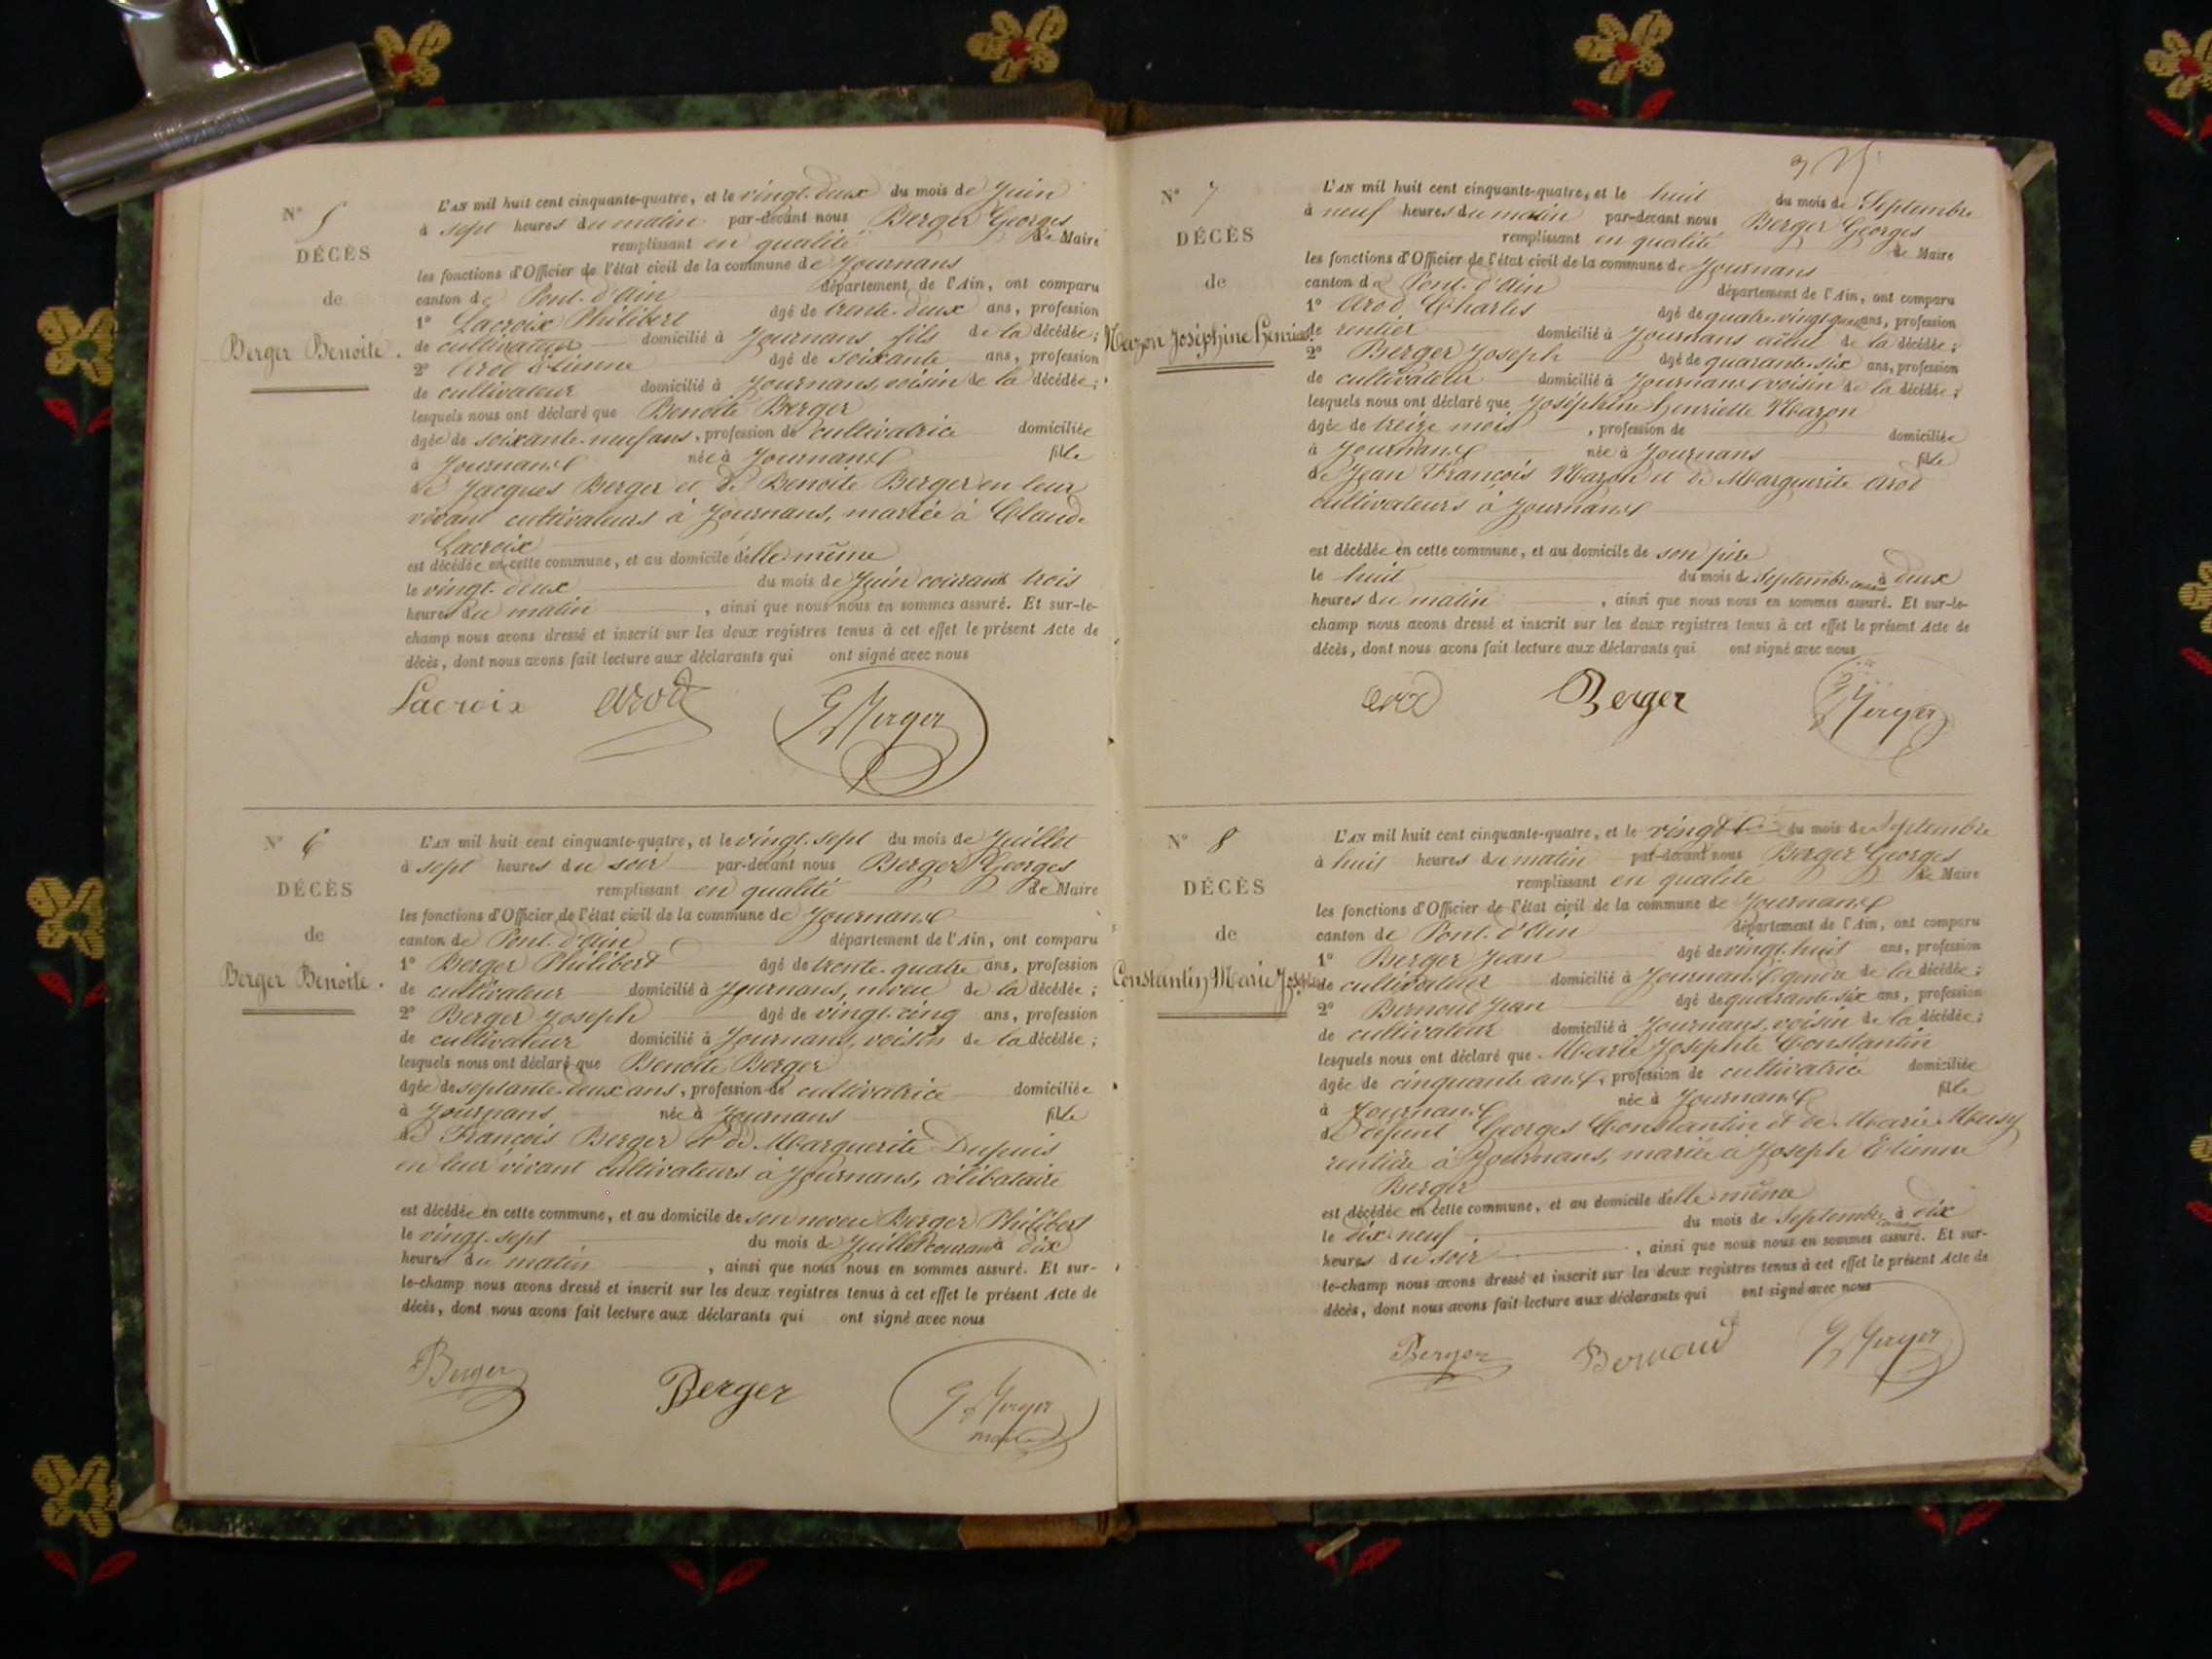 N° 5
DÉCÈS
de
Berger Benoite.
L'AN mil huit cent cinquante-quatre, et le vingt-deux du mois de Juin
à sept heures du matin par-devant nous Berger Georges
remplissant en qualité de Maire
les fonctions d'Officier de l'état civil de la commune de Journans
canton de Pont-d'ain département de l'Ain, ont comparu
1° Lacroix Philibert âgé de trente-deux ans, profession
de cultivateur domicilié à Journans fils de la décédée;
2° Arod Etienne âgé de soixante ans, profession
de cultivateur domicilié à Journans, voisin de la décédée;
lesquels nous ont déclaré que Benoite Berger
âgée de soixante-neuf ans, profession de cultivatrice domiciliée
à Journans née à Journans fille
de Jacques Berger et de Benoite Berger en leur
vivant cultivateurs à Journans, mariée à Claude
Lacroix
est décédée en cette commune, et au domicile d'elle-même
le vingt-deux du mois de Juin courant trois
heures du matin, ainsi que nous nous en sommes assuré. Et sur-le-
champ nous avons dressé et inscrit sur les deux registres tenus à cet effet le présent Acte de
décès, dont nous avons fait lecture aux déclarants qui ont signé avec nous
Lacroix Arod G Berger
N° 6
DÉCÈS
de
Berger Benoite.
L'AN mil huit cent cinquante-quatre, et le vingt-sept du mois de Juillet
à sept heures du soir par-devant nous Berger Georges
remplissant en qualité de Maire
les fonctions d'Officier de l'état civil de la commune de Journans
canton de Pont-d'ain département de l'Ain, ont comparu
1° Berger Philibert âgé de trente-quatre ans, profession
de cultivateur domicilié à Journans, neveu de la décédée;
2° Berger Joseph âgé de vingt-cinq ans, profession
de cultivateur domicilié à Journans, voisin de la décédée;
lesquels nous ont déclaré que Benoite Berger
âgée de septante-deux ans, profession de cultivatrice domiciliée
à Journans née à Journans fille
de François Berger et de Marguerite Dupuis
en leur vivant cultivateurs à Journans, célibataire
est décédée en cette commune, et au domicile de son neveu Berger Philibert
le vingt-sept du mois de Juillet courant à dix
heures du matin, ainsi que nous nous en sommes assuré. Et sur-
le-champ nous avons dressé et inscrit sur les deux registres tenus à cet effet le présent Acte de
décès, dont nous avons fait lecture aux déclarants qui ont signé avec nous
Berger Berger G Berger
maire
N° 7
DÉCÈS
de
Mazon Joséphine Henriette
L'AN mil huit cent cinquante-quatre, et le huit du mois de Septembre
à neuf heures du matin par-devant nous Berger Georges
remplissant en qualité de Maire
les fonctions d'Officier de l'état civil de la commune de Journans
canton de Pont-d'ain département de l'Ain, ont comparu
1° Arod Charles âgé de quatre-vingt-quatre ans, profession
de rentier domicilié à Journans aïeul de la décédée;
2° Berger Joseph âgé de quarante-six ans, profession
de cultivateur domicilié à Journans, voisin de la décédée;
lesquels nous ont déclaré que Joséphine henriette Mazon
âgée de treize mois, profession de domiciliée
à Journans née à Journans fille
de Jean François Mazon et de Marguerite Arod
cultivateurs à Journans
est décédée en cette commune, et au domicile de son père
le huit du mois de Septembre courant à deux
heures du matin, ainsi que nous nous en sommes assuré. Et sur-le-
champ nous avons dressé et inscrit sur les deux registres tenus à cet effet le présent Acte de
décès, dont nous avons fait lecture aux déclarants qui ont signé avec nous
Arod Berger G Berger
N° 8
DÉCÈS
de
Constantin Marie Josephte
L'AN mil huit cent cinquante-quatre, et le vingt du mois de Septembre
à huit heures du matin par-devant nous Berger Georges
remplissant en qualité de Maire
les fonctions d'Officier de l'état civil de la commune de Journans
canton de Pont-d'ain département de l'Ain, ont comparu
1° Berger Jean âgé de vingt-huit ans, profession
de cultivateur domicilié à Journans, gendre de la décédée;
2° Bernoud Jean âgé de quarante-six ans, profession
de cultivateur domicilié à Journans, voisin de la décédée;
lesquels nous ont déclaré que Marie Josephte Constantin
âgée de cinquante ans, profession de cultivatrice domiciliée
à Journans née à Journans fille
de défunt Georges Constantin et de Marie Meusy
rentière à Journans, mariée à Joseph Etienne
Berger
est décédée en cette commune, et au domicile d'elle-même
le dix-neuf du mois de Septembre courant à dix
heures du soir, ainsi que nous nous en sommes assuré. Et sur-
le-champ nous avons dressé et inscrit sur les deux registres tenus à cet effet le présent Acte de
décès, dont nous avons fait lecture aux déclarants qui ont signé avec nous
Berger Bernoud G Berger